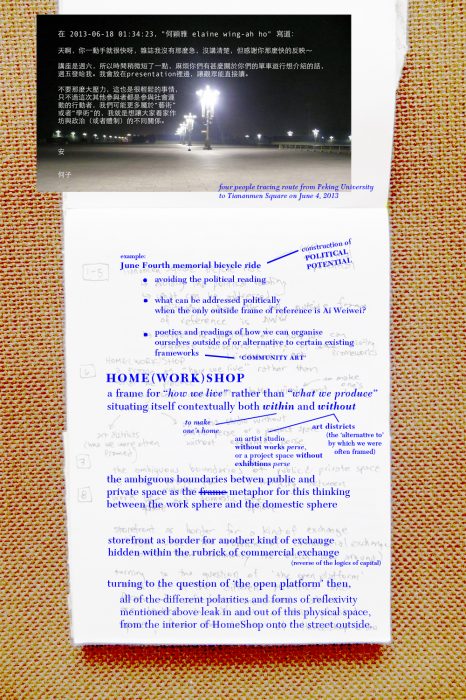 在 2013-06-18 01:34:23，"何穎雅 elaine wing-ah ho" 寫道：
天啊，你一動手就很快呀，雜誌我沒有那麼急，沒講清楚，但感謝你那麼快的反映～
講座是週六，所以時間稍微短了一點，麻煩你們有甚麼關於你們的單車遊行想介紹的話，
週五發給我。我會放在presentation裡邊，讓觀眾能直接讀。
不要那麼大壓力，這也是很輕鬆的事情，
只不過這次其他參與者都是參與社會運
動的行動者，我們可能更多屬於"藝術"
或者"學術"的，我就是想讓大家看家作
坊與政治（或者體制）的不同關係。
安
何子
four people tracing route from Peking University
to Tiananmen Square on June 4, 2013
example:
June Fourth memorial bicycle ride
construction of
POLITICAL
POTENTIAL
avoiding the political reading
what can be addressed politically
when the only outside frame of reference is Ai Weiwei?
poetics and readings of how we can organise
ourselves outside of or alternative to certain existing
frameworks
'COMMUNITY ART'
HOME(WORK)SHOP
a frame for "how we live" rather than "what we produce"
situating itself contextually both within and without
to make
one's home
an artist studio
without works perse,
or a project space without
exhibtions perse
art districts
(the 'alternative to'
by which we were
often framed)
the ambiguous boundaries betwen public and
private space as the frame metaphor for this thinking
between the work sphere and the domestic sphere
storefront as border for another kind of exchange
hidden within the rubrick of commercial exchange
(reverse of the logics of capital)
turning to the question of 'the open platform' then,
all of the different polarities and forms of reflexivity
mentioned above leak in and out of this physical space,
from the interior of HomeShop onto the street outside.